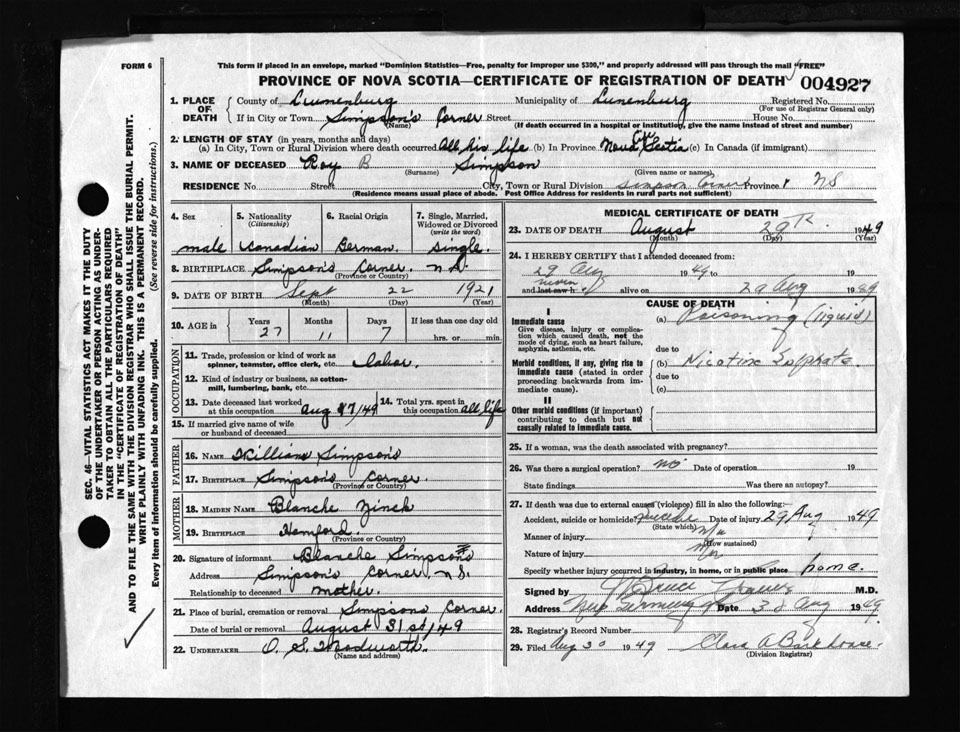 FORM 6
This form if placed in an envelope, marked "Dominion Statistics—Free, penalty for improper use $300," and properly addressed will pass through the mail "FREE"
PROVINCE OF NOVA SCOTIA—CERTIFICATE OF REGISTRATION OF DEATH
004927
SEC. 46—VITAL STATISTICS ACT MAKES IT THE DUTY
OF THE UNDERTAKER OR PERSON ACTING AS UNDER-
TAKER TO OBTAIN ALL THE PARTICULARS REQUIRED
IN THE "CERTIFICATE OF REGISTRATION OF DEATH"
AND TO FILE THE SAME WITH THE DIVISION REGISTRAR WHO SHALL ISSUE THE BURIAL PERMIT.
WRITE PLAINLY WITH UNFADING INK. THIS IS A PERMANENT RECORD.
Every item of information should be carefully supplied. (See reverse side for instructions.)
1. PLACE OF DEATH
County of Lunenburg Municipality of Lunenburg Registered No.
(For use of Registrar General only)
If in City or Town Simpson's Corner Street House No.
(Name) (If death occurred in a hospital or institution, give the name instead of street and number)
2. LENGTH OF STAY (in years, months and days)
(a) In City, Town or Rural Division where death occurred All his life (b) In Province Nova Scotia (c) In Canada (if immigrant)
3. NAME OF DECEASED Roy B Simpson
(Surname) (Given name or names)
RESIDENCE No. Street City, Town or Rural Division Simpson Corner Province NS
(Residence means usual place of abode. Post Office Address for residents in rural parts not sufficient)
4. Sex
male
5. Nationality
(Citizenship)
Canadian
6. Racial Origin
German
7. Single, Married,
Widowed or Divorced
(write the word)
Single
8. BIRTHPLACE Simpson's Corner. N.S.
(Province or Country)
9. DATE OF BIRTH Sept 22 1921
(Month) (Day) (Year)
10. AGE in
Years Months Days If less than one day old
27 11 7 hrs. or min.
OCCUPATION
11. Trade, profession or kind of work as
spinner, teamster, office clerk, etc. Labor
12. Kind of industry or business, as cotton-
mill, lumbering, bank, etc.
13. Date deceased last worked
at this occupation Aug 17/49
14. Total yrs. spent in
this occupation all life
15. If married give name of wife
or husband of deceased
FATHER
16. NAME William Simpson
17. BIRTHPLACE Simpson's Corner.
(Province or Country)
MOTHER
18. MAIDEN NAME Blanche Zinck
19. BIRTHPLACE Hemford.
(Province or Country)
20. Signature of informant Blanche Simpson
Address Simpson's Corner, N.S.
Relationship to deceased mother.
21. Place of burial, cremation or removal Simpsons Corner.
Date of burial or removal August 31st/49
22. UNDERTAKER O. S. Woodworth.
(Name and address)
MEDICAL CERTIFICATE OF DEATH
23. DATE OF DEATH August 29th 1949
(Month) (Day) (Year)
24. I HEREBY CERTIFY that I attended deceased from:
29 Aug 1949 to 19
and last saw h alive on 29 Aug 19
never
CAUSE OF DEATH
I
Immediate cause
Give disease, injury or complica-
tion which caused death, not the
mode of dying, such as heart failure,
asphyxia, asthenia, etc.
(a) Poisoning (liquid)
due to
Morbid conditions, if any, giving rise to
immediate cause (stated in order
proceeding backwards from im-
mediate cause).
(b) Nicotine Sulphate
due to
(c)
II
Other morbid conditions (if important)
contributing to death but not
causally related to immediate cause.
25. If a woman, was the death associated with pregnancy?
26. Was there a surgical operation? no Date of operation 19
State findings Was there an autopsy?
27. If death was due to external causes (violence) fill in also the following:
Accident, suicide or homicide suicide Date of injury 29 Aug 1949
(State which)
Manner of injury
(How sustained)
Nature of injury
Specify whether injury occurred in industry, in home, or in public place home.
Signed by Bruce M.D.
Address New Germany Date Aug 1949
28. Registrar's Record Number
29. Filed Aug 30 1949 Clara A Barkhouse.
(Division Registrar)